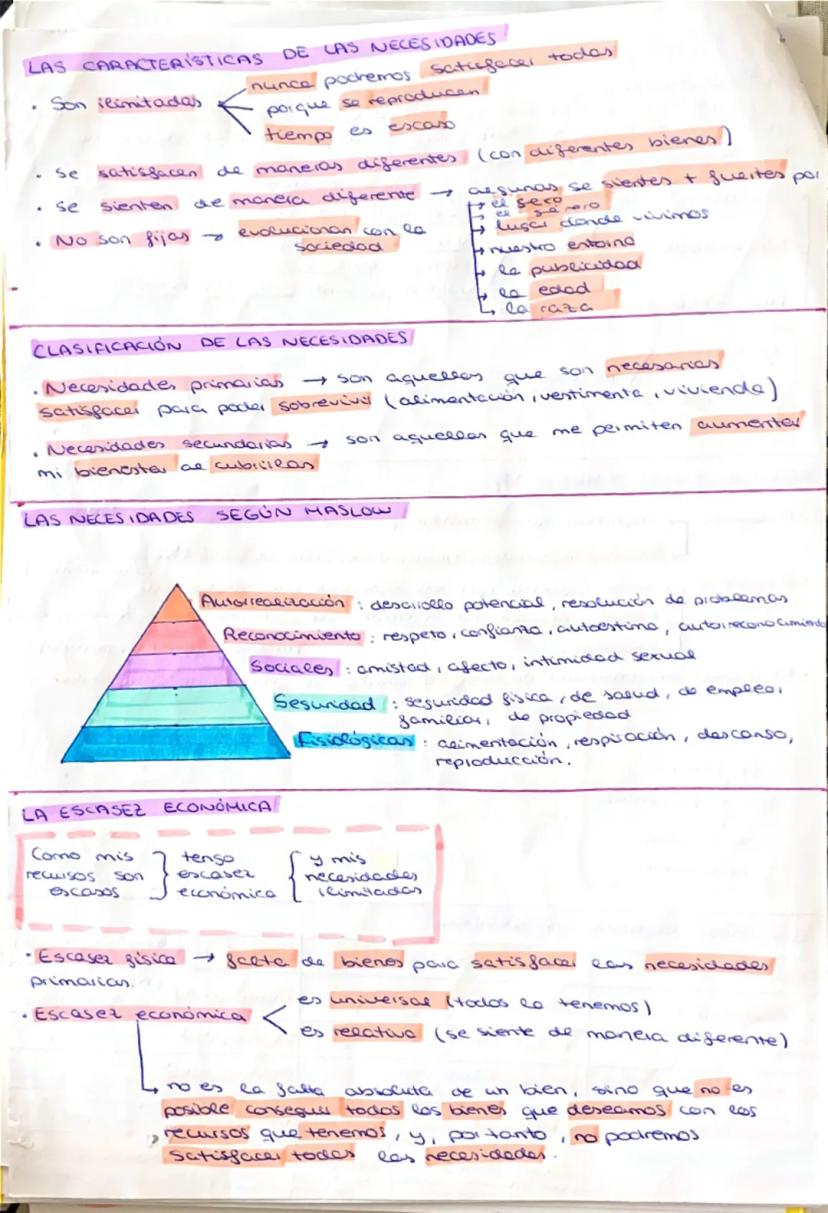 LAS CARACTERÍSTICAS DE LAS NECESIDADES
nunca podremos satisfacer todas
· Son ilimitadas
porque se reproducen
tiempo es escaso
· Se satisfacen de maneras diferentes (con diferentes bienes)
· Se sienten de manera diferente → algunas se sientes + fuertes por
el sexo
lugar donde vivimos
nuestro entorno
la publicidad
la edad
la raza
· No son fijas → evolucionan con la
sociedad
CLASIFICACIÓN DE LAS NECESIDADES
· Necesidades primarias → son aquellas que son necesarias
satisfacer para poder sobrevivir (alimentación, vestimenta, vivienda)
· Necesidades secundarias → son aquellas que me permiten aumentar
mi bienestar al cubrirlas
LAS NECESIDADES SEGÚN MASLOW
Autorrealización : desarrollo potencial, resolución de problemas
Reconocimiento : respeto, confianza, autoestima, autorreconocimiento
Sociales : amistad, afecto, intimidad sexual
Seguridad : seguridad física, de salud, de empleo,
familiar, de propiedad
Fisiológicas : alimentación, respiración, descanso,
reproducción.
LA ESCASEZ ECONÓMICA
Como mis } tengo { y mis
recursos son } escasez { necesidades
escasos } económica { ilimitadas
· Escasez física → falta de bienes para satisfacer las necesidades
primarias.
es universal (todos la tenemos)
· Escasez económica
es relativa (se siente de manera diferente)
no es la falta absoluta de un bien, sino que no es
posible conseguir todos los bienes que deseamos con los
recursos que tenemos, y, por tanto, no podremos
satisfacer todas las necesidades.